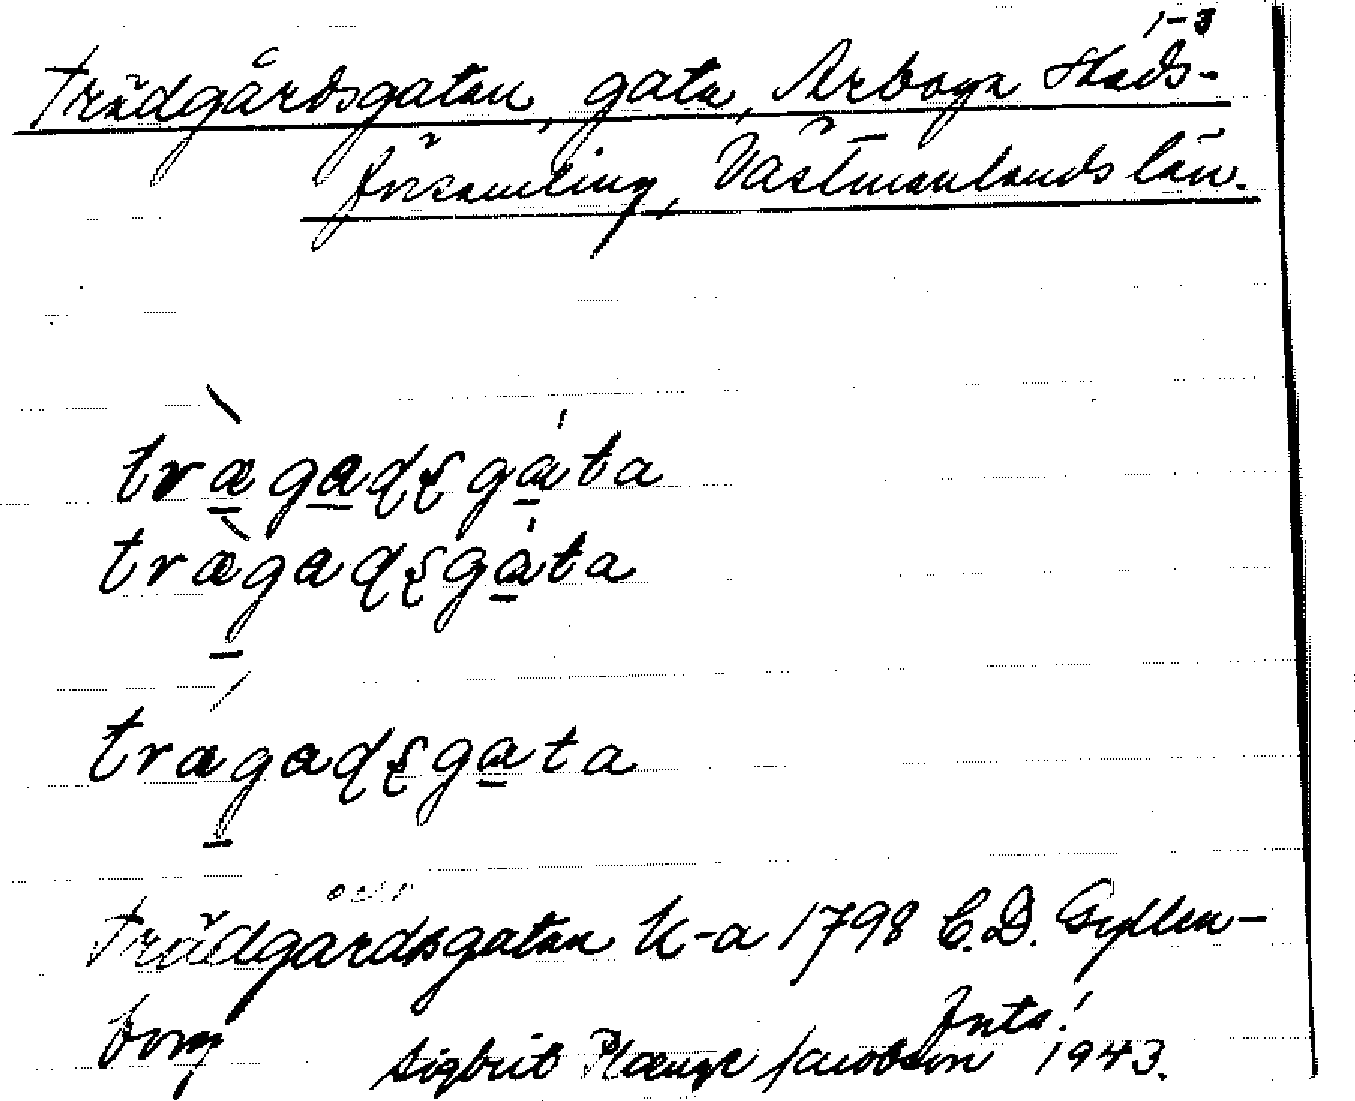 1-3
Trädgårdsgatan, gata, Arboga Stads-
församling, Västmanlands län.
trægadʂgata
trægadʂgata
tragadʂgata
Trädgårdsgatan K-a 1798 C.D. Gyllen-
borg
Sigbrit Plænge Jacobson 1943.